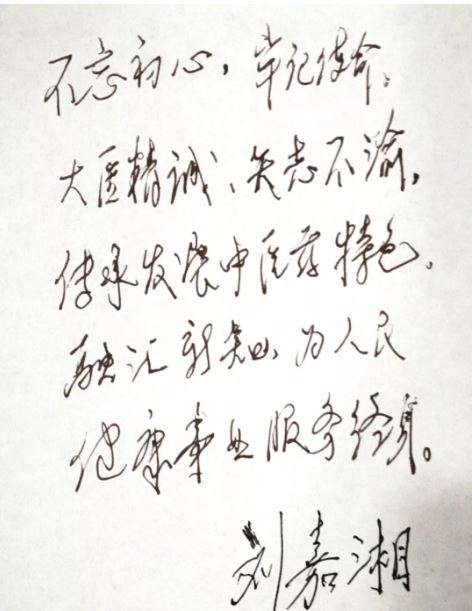 不忘初心，牢记使命。
大医精诚、矢志不渝，
传承发展中医药特色。
融汇新知，为人民
健康事业服务终身。
刘嘉湘